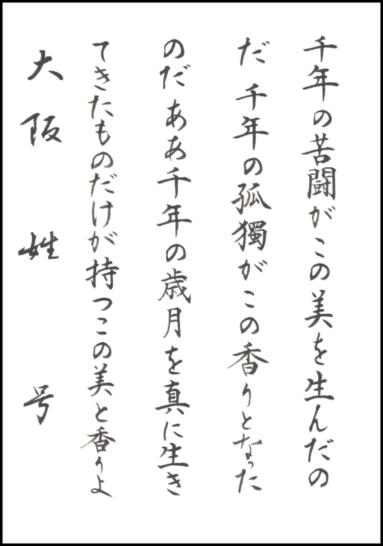 千年の苦闘がこの美を生んだの
だ 千年の孤獨がこの香りとなった
のだ ああ千年の歳月を真に生き
てきたものだけが持つこの美と香りよ
大阪 姓 号